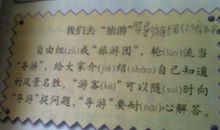 我们去“旅游”
自由组(zǔ)成“旅游团”，轮(lún)流当
“导游”，给大家介(jiè)绍(shào)自己知道
的风景名胜。“游客(kè)”可以随(suí)时向
“导游”提问题，“导游”要耐(nài)心解答。